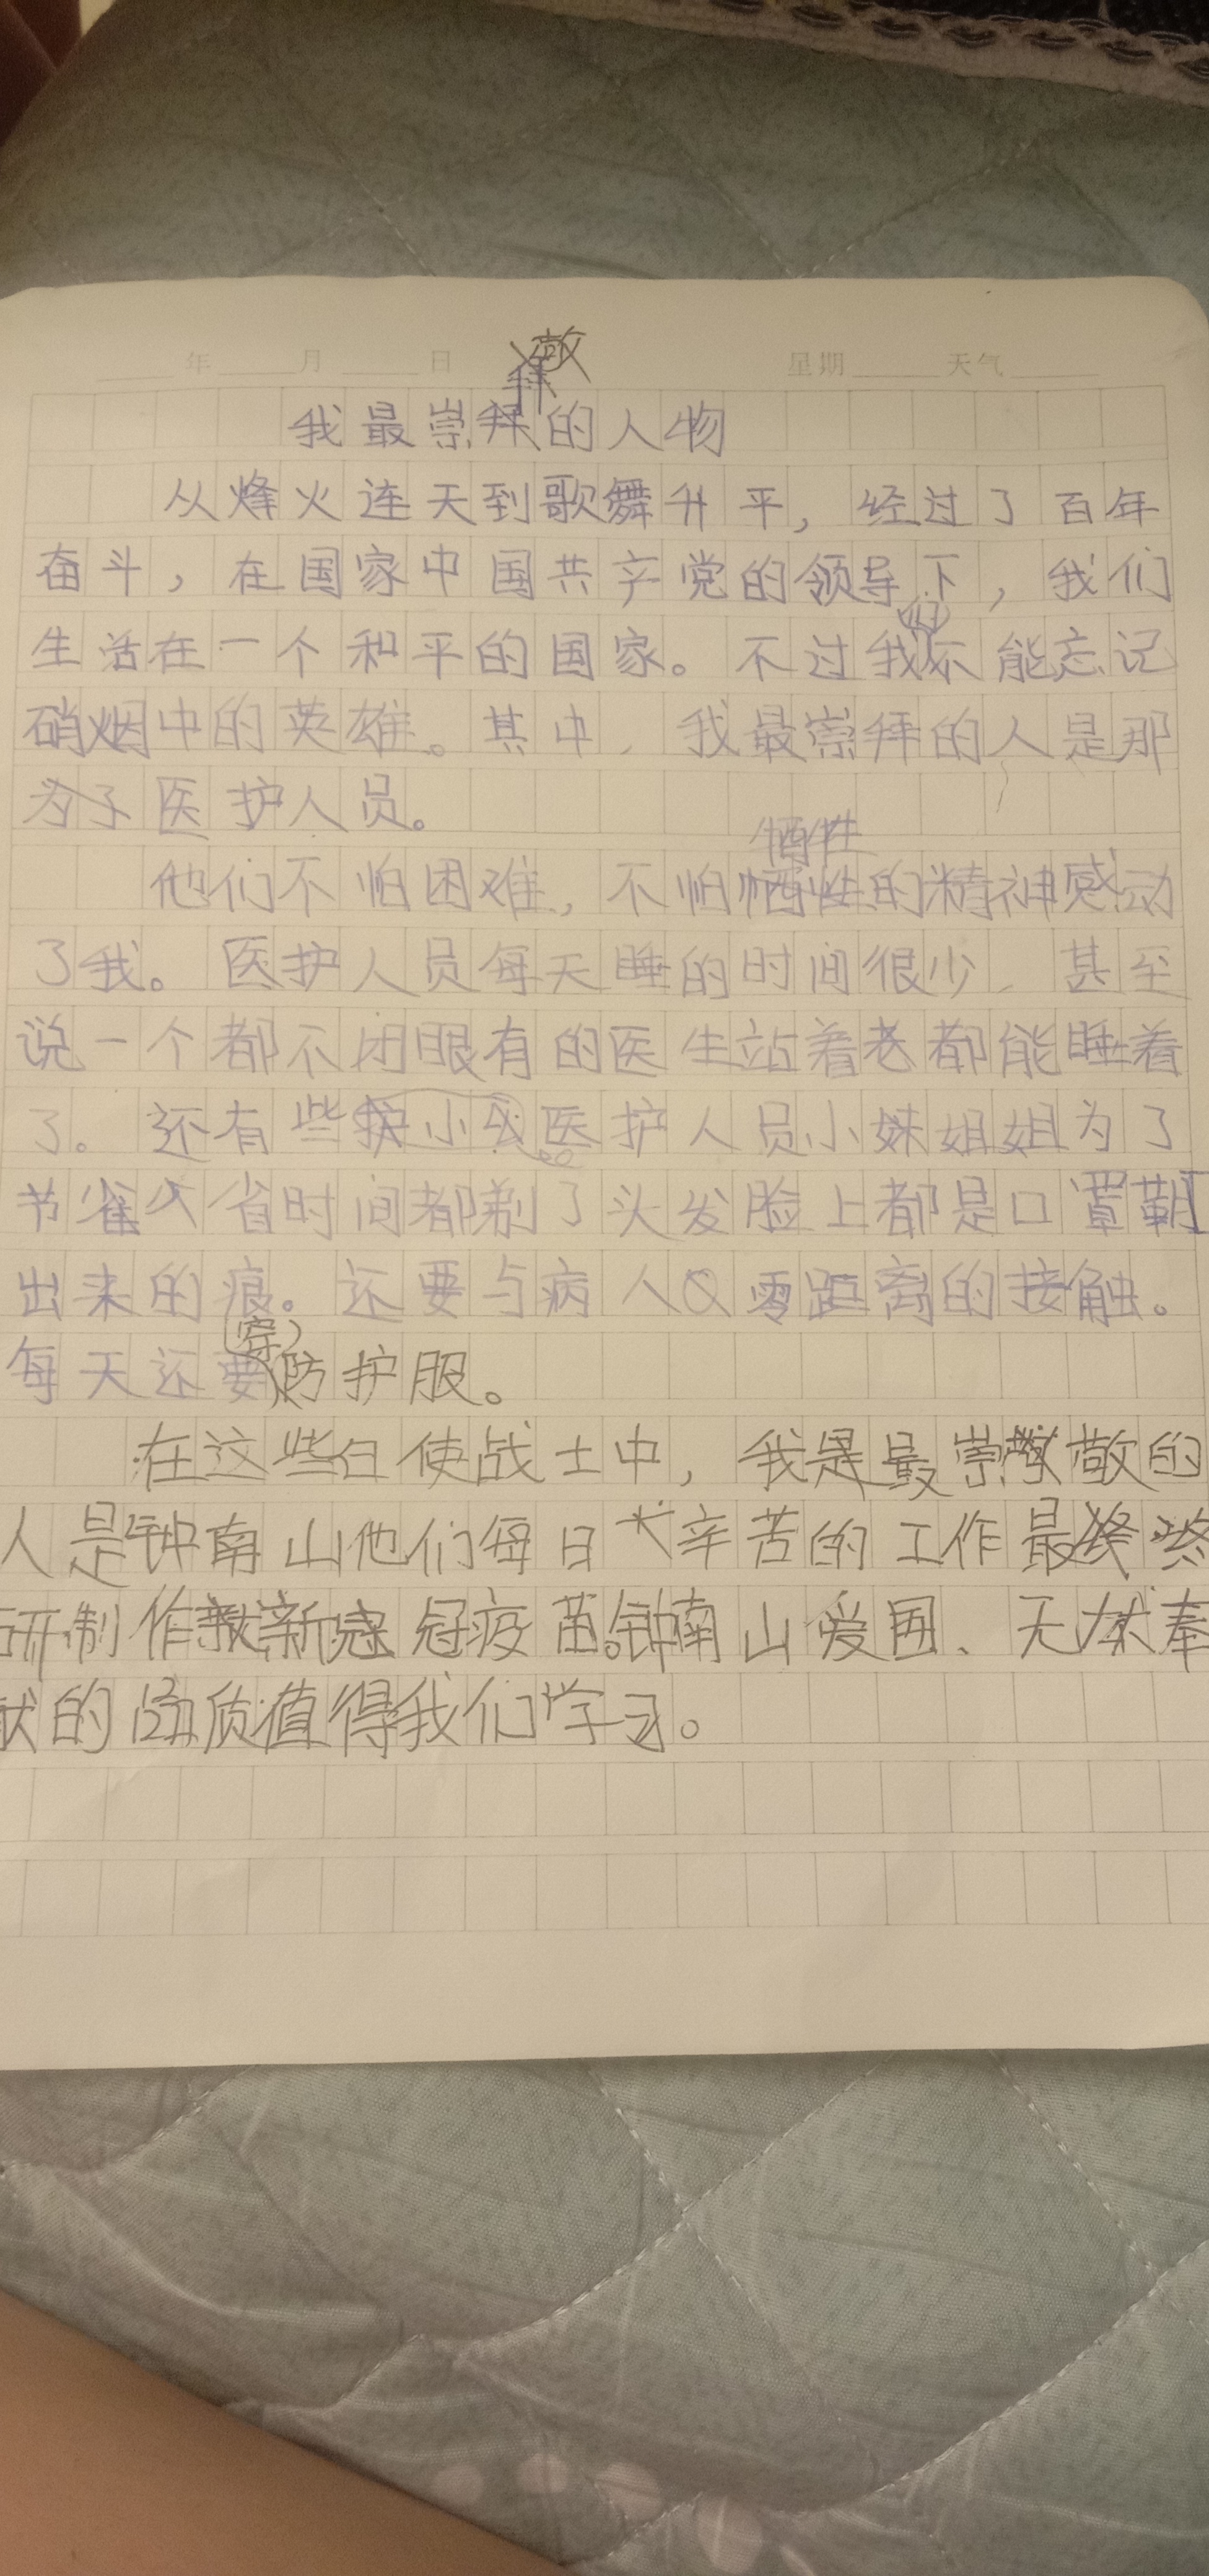 年 月 日 星期 天气
敬
拜
我最崇拜的人物
从烽火连天到歌舞升平，经过了百年
奋斗，在国家中国共产党的领导下，我们
生活在一个和平的国家。不过我不能忘记
硝烟中的英雄。其中，我最崇拜的人是那
为了医护人员。
牺牲
他们不怕困难，不怕牺牲的精神感动
了我。医护人员每天睡的时间很少，甚至
说一个都不闭眼有的医生站着老都能睡着
了。还有些医护人员小妹姐姐为了
节省时间都剃了头发脸上都是口罩
出来的痕。还要与病人零距离的接触。
穿
每天还要防护服。
在这些白使战士中，我是最崇敬的
人是钟南山他们每日辛苦的工作最终
研制作新冠疫苗。钟南山爱国、无私奉
献的品质值得我们学习。